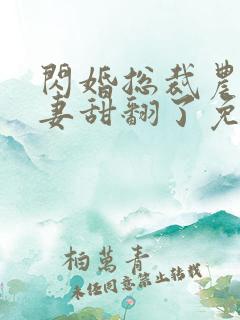 閃婚总裁農
妻甜翻了免
柏萬青
未任同意禁止轉載